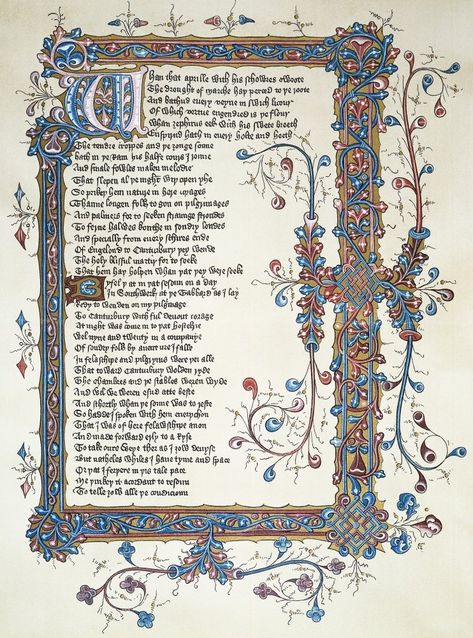 Whan that aprille with his schowres swoote
The drought of marche hay perced to ye roote
And bathud every veyne in swich licour
Of which vertue engendred is ye flour
Whan zephirus eek with his swete breeth
Enspirud hath in every holte and heeth
The tendre croppes and ye yonge sonne
hath in ye Ram his halfe cours I ronne
And smale fowles maken melodie
That slepen al ye night wiþ open yhe
So prikeþ hem nature in here corages
Thanne longen folk to gon on pilgrimages
And palmers for to seeken straunge strondes
To ferne halwes kouthe in sondry londes
And specially from every schires ende
Of Engelond to Caunturbury yey wende
The holy blisful martir for to seeke
That hem hay holpen whan yat yey were seeke
Byfel yat in yat sesoun on a day
In Southwerk at ye Tabbard as I lay
Redy to wenden on my pilgrimage
To Cauntturbury with ful devout corage
At night was come in to yat hostelrie
Wel nyne and twenty in a companye
Of sondry folk by aventure I falle
In felaschipe and pilgryms were yei alle
That toward Canturbury wolden ryde
The chambres and ye stables weren wyde
And wel we weren esud atte beste
And schortly whan ye sonne was to reste
So hadde I spoken with hem everychon
That I was of here felawschipe anon
And made forward erly to aryse
To take oure weye ther as I yow devyse
But natheles whiles I have tyme and space
Or yat I ferþere in yis tale pace
Me þinkeþ it acordant to resoun
To telle yow alle ye condicioun